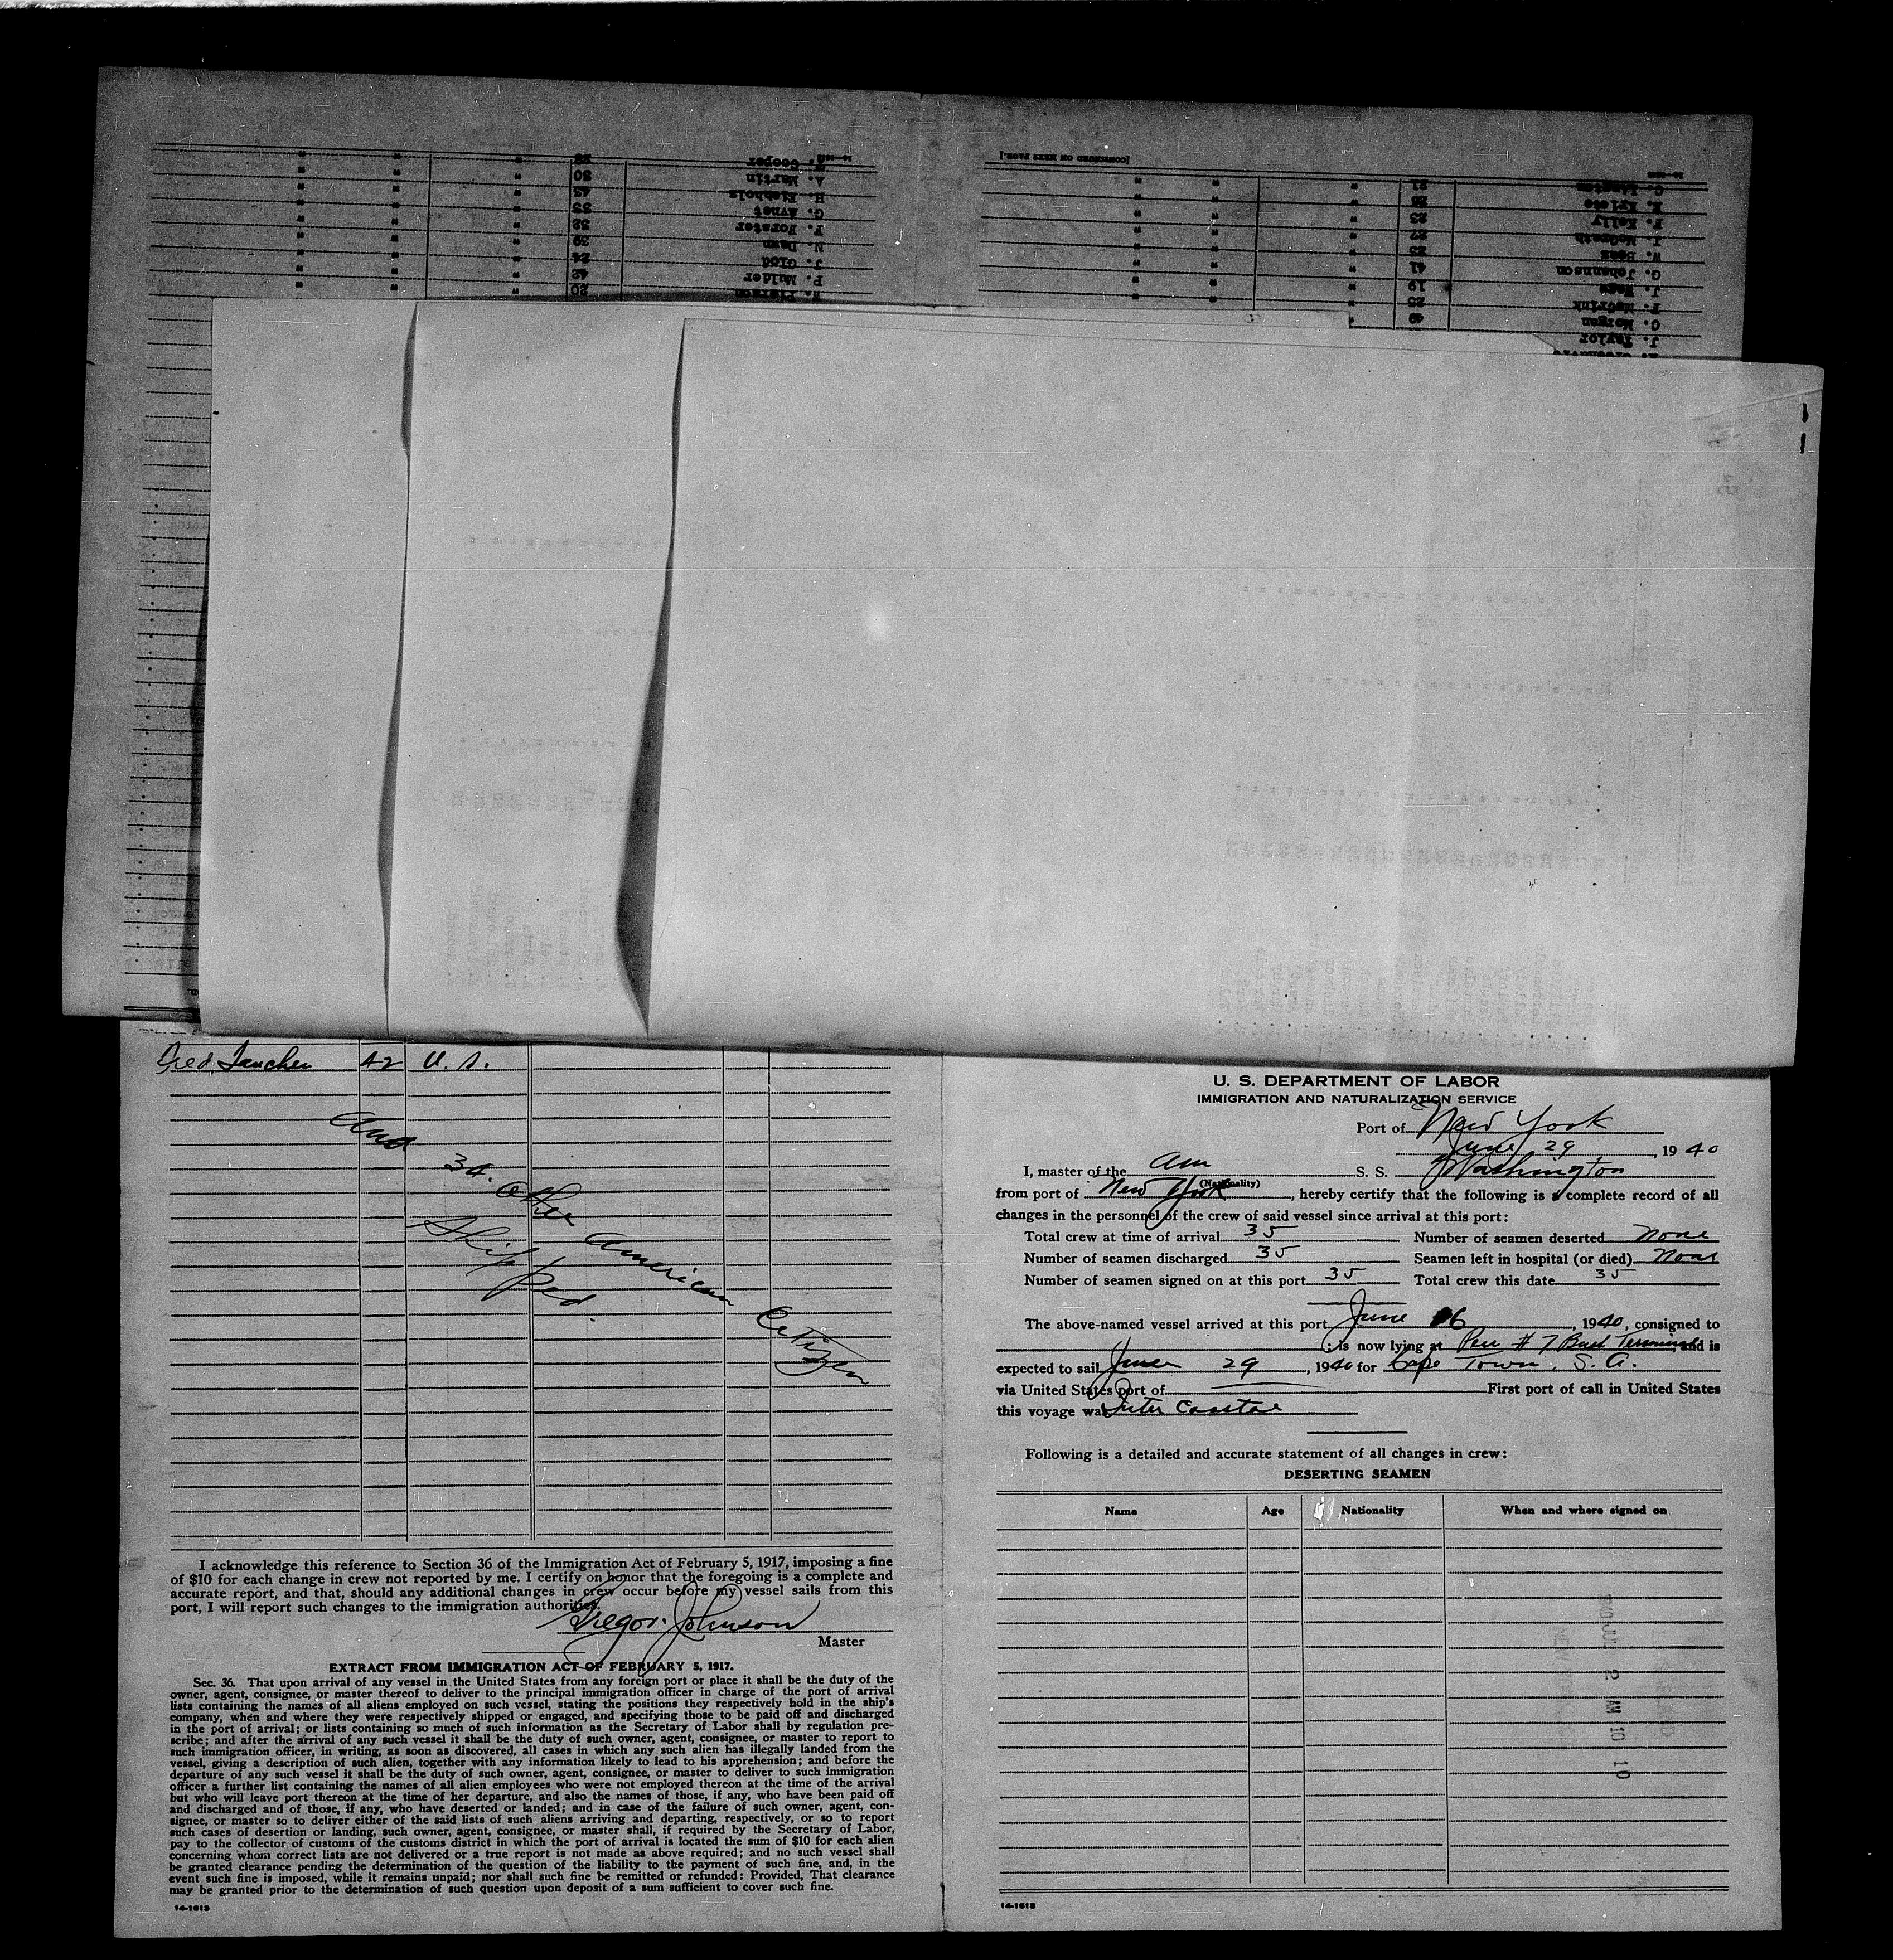 [CONTINUED ON NEXT PAGE.]
Cooper 29
A. Martin 30
H. 43
G. 33
F. Forster 32
N. Dawn 39
J. Glod 24
P. Mulder 42
20
C. 21
K. 26
P. Kelly 23
J. McGrath 27
W. Boas 23
G. Johannson 41
J. 19
P. McGrink 23
C. Morgan 49
J. Taylor
Fred. 42 U. S.
and
34. other american Citizen
Shipped.
I acknowledge this reference to Section 36 of the Immigration Act of February 5, 1917, imposing a fine
of $10 for each change in crew not reported by me. I certify on honor that the foregoing is a complete and
accurate report, and that, should any additional changes in crew occur before my vessel sails from this
port, I will report such changes to the immigration authorities.
Gregor Johnson
Master
EXTRACT FROM IMMIGRATION ACT OF FEBRUARY 5, 1917.
Sec. 36. That upon arrival of any vessel in the United States from any foreign port or place it shall be the duty of the
owner, agent, consignee, or master thereof to deliver to the principal immigration officer in charge of the port of arrival
lists containing the names of all aliens employed on such vessel, stating the positions they respectively hold in the ship's
company, when and where they were respectively shipped or engaged, and specifying those to be paid off and discharged
in the port of arrival; or lists containing so much of such information as the Secretary of Labor shall by regulation pre-
scribe; and after the arrival of any such vessel it shall be the duty of such owner, agent, consignee, or master to report to
such immigration officer, in writing, as soon as discovered, all cases in which any such alien has illegally landed from the
vessel, giving a description of such alien, together with any information likely to lead to his apprehension; and before the
departure of any such vessel it shall be the duty of such owner, agent, consignee, or master to deliver to such immigration
officer a further list containing the names of all alien employees who were not employed thereon at the time of the arrival
but who will leave port thereon at the time of her departure, and also the names of those, if any, who have been paid off
and discharged and of those, if any, who have deserted or landed; and in case of the failure of such owner, agent, con-
signee, or master so to deliver either of the said lists of such aliens arriving and departing, respectively, or so to report
such cases of desertion or landing, such owner, agent, consignee, or master shall, if required by the Secretary of Labor,
pay to the collector of customs of the customs district in which the port of arrival is located the sum of $10 for each alien
concerning whom correct lists are not delivered or a true report is not made as above required; and no such vessel shall
be granted clearance pending the determination of the question of the liability to the payment of such fine, and, in the
event such fine is imposed, while it remains unpaid; nor shall such fine be remitted or refunded: Provided, That clearance
may be granted prior to the determination of such question upon deposit of a sum sufficient to cover such fine.
14-1613
U. S. DEPARTMENT OF LABOR
IMMIGRATION AND NATURALIZATION SERVICE
Port of New York
June 29, 1940
I, master of the Am S. S. Washington
(Nationality)
from port of New York, hereby certify that the following is a complete record of all
changes in the personnel of the crew of said vessel since arrival at this port:
Total crew at time of arrival 35 Number of seamen deserted None
Number of seamen discharged 35 Seamen left in hospital (or died) None
Number of seamen signed on at this port 35 Total crew this date 35
The above-named vessel arrived at this port June 16, 1940, consigned to
; is now lying at Pier # 7 Bush Terminal and is
expected to sail June 29, 1940 for Cape Town. S. A.
via United States port of First port of call in United States
this voyage was Inter Coastal
Following is a detailed and accurate statement of all changes in crew:
DESERTING SEAMEN
Name Age Nationality When and where signed on
1940 JUL 2 AM 10 10
14-1613